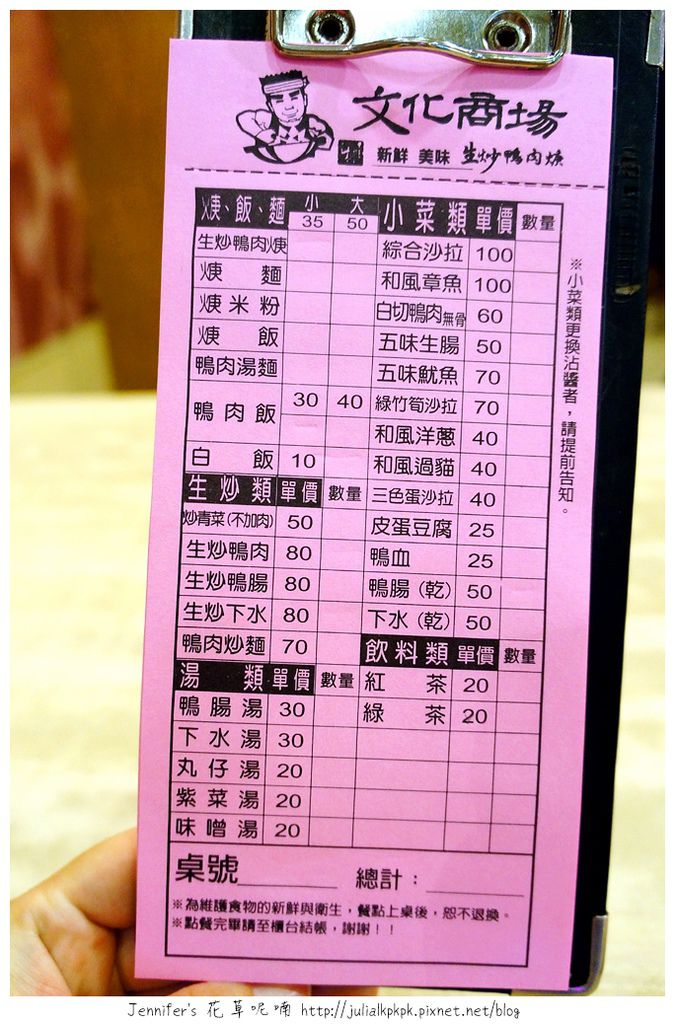 文化商場
新鮮 美味 生炒鴨肉焿
焿、飯、麵 小 大
35 50
生炒鴨肉焿
焿麵
焿米粉
焿飯
鴨肉湯麵
鴨肉飯 30 40
白飯 10
生炒類 單價 數量
炒青菜(不加肉) 50
生炒鴨肉 80
生炒鴨腸 80
生炒下水 80
鴨肉炒麵 70
湯類 單價 數量
鴨腸湯 30
下水湯 30
丸仔湯 20
紫菜湯 20
味噌湯 20
小菜類 單價 數量
綜合沙拉 100
和風章魚 100
白切鴨肉無骨 60
五味生腸 50
五味魷魚 70
綠竹筍沙拉 70
和風洋蔥 40
和風過貓 40
三色蛋沙拉 40
皮蛋豆腐 25
鴨血 25
鴨腸(乾) 50
下水(乾) 50
飲料類 單價 數量
紅茶 20
綠茶 20
※小菜類更換沾醬者，請提前告知。
桌號 總計：
※為維護食物的新鮮與衛生，餐點上桌後，恕不退換。
※點餐完畢請至櫃台結帳，謝謝！！
Jennifer's 花草呢喃 http://julialkpkpk.pixnet.net/blog